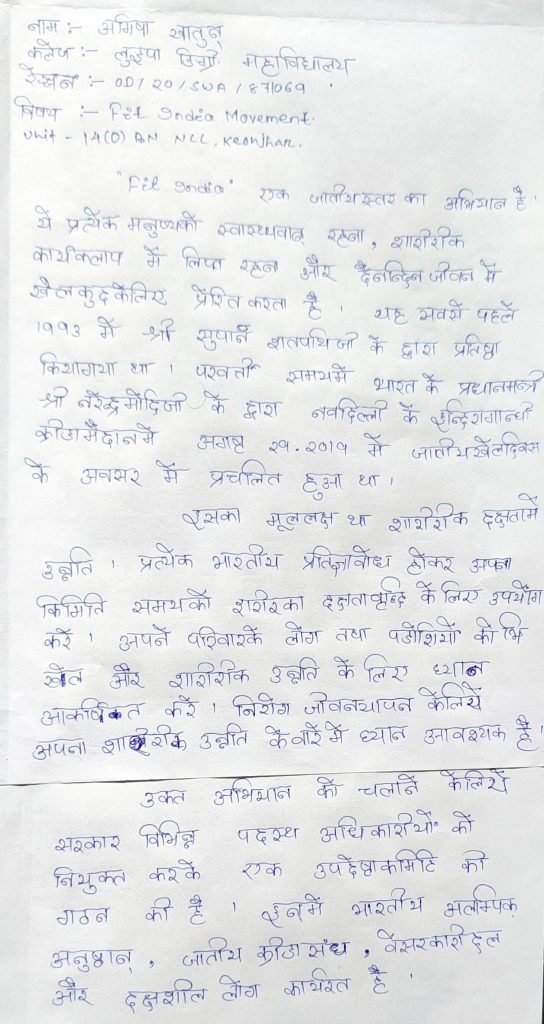 नाम :- अमिषा खातुन्
कलेज :- लुइपा डिग्री महाविद्यालय
रेक्सन :- OD/20/SWA/871069
विषय :- Fit India Movement.
Unit - 14(O) BN NCC, Keonjhar.
"Fit India" एक जातीयस्तर का अभियान है ।
ये प्रत्येक मनुष्यको स्वास्थ्यवान् रहना, शारीरीक
कार्यकलाप में लिप्त रहना और दैनन्दिन जीवन में
खेलकुदकेलिए प्रेरित करता है । यह सबसे पहले
1993 में श्री सुपार्न शतपथिजी के द्वारा प्रतिष्ठा
कियागया था । परवर्ती समयमें भारत के प्रधानमन्त्री
श्री नरेन्द्रमोदिजी के द्वारा नवदिल्ली के इन्दिरागान्धी
क्रीडामैदानमें अगष्ट 29.2019 में जातीयखेलदिवस
के अवसर में प्रचलित हुआ था ।
इसका मूललक्ष था शारीरीक दक्षतामें
उन्नति । प्रत्येक भारतीय प्रतिज्ञावोध होकर अपना
किमिति समयको शरीरका दक्षतावृद्धि के लिए उपयोग
करें । अपने परिवारके लोग तथा पडोशियों को भि
खेल और शारीरीक उन्नति के लिए ध्यान
आकर्षित करें । निरोग जीवनयापन केलिये
अपना शारीरीक उन्नति केवारेमें ध्यान आवश्यक है ।
उक्त अभियान को चलाने केलिये
सरकार विभिन्न पदस्थ अधिकारीयों को
नियुक्त करके एक उपदेष्टाकमिटि की
गठन की है । इनमें भारतीय अलम्पिक्
अनुष्ठान्, जातीय क्रीडा संघ, वेसरकारी दल
और दक्षशील लोग कार्यरत है ।